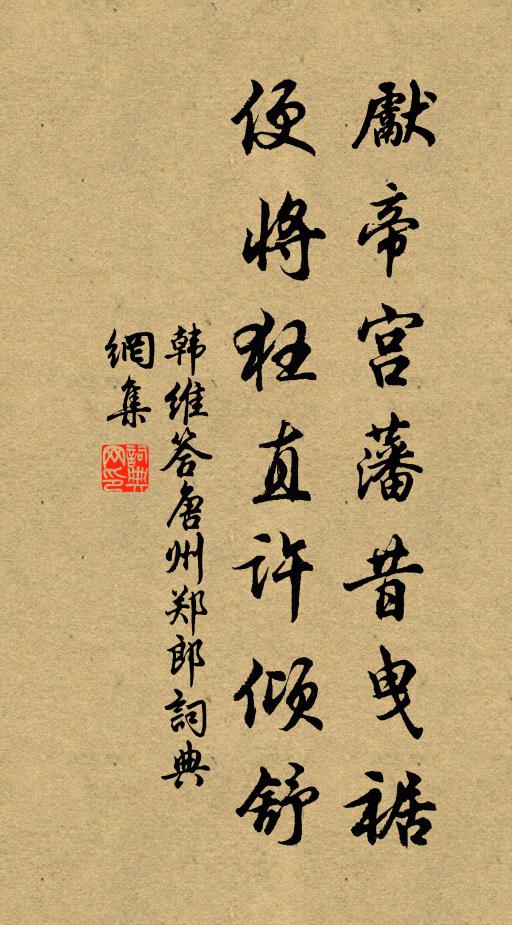 獻帝宫藩昔曳裾
便將狂直许傾舒
韩维答唐州郑郎詞典
網集
詞典
网印